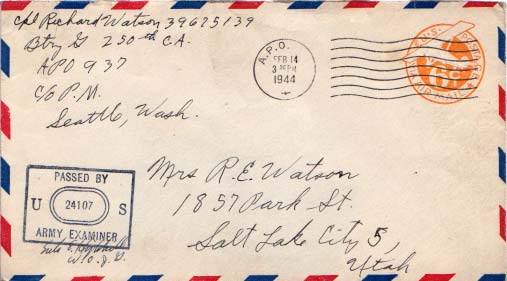 Cpl Richard Watson 39675139
Btry G 250th C.A.
APO 937
C/o P.M.
Seattle, Wash.
A.P.O.
FEB 14
3 PM
1944
U.S. POSTAGE
6c
VIA AIR MAIL
Mrs R.E. Watson
1857 Park St.
Salt Lake City 5,
Utah
PASSED BY
U 24107 S
ARMY EXAMINER
W.O.J.G.